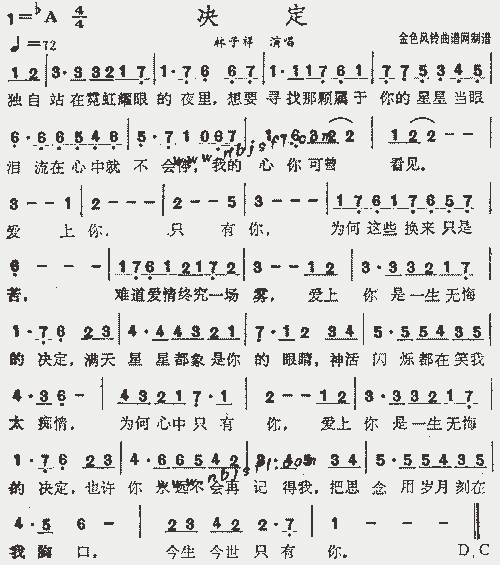 1=♭A 4/4 决 定
♩=72 林子祥 演唱 金色风铃曲谱网制谱
1 2 | 3·3 3 2 1 7 | 1·7 6 6 7 | 1·1 1 7 6 1 | 7 7 5 3 4 5 |
独自 站在霓虹耀眼 的夜里,想要 寻找那颗属于 你的星星当眼
6·6 6 5 4 6 | 5·7 1 0 6 7 | 1 6 3 2 2 | 1 2 2 - - |
泪 流在心中就 不会停,我的 心你可曾 看见。
3 - - 1 | 2 - - - | 2 - - 5 | 3 - - - | 1 7 6 1 7 6 5 7 |
爱 上你, 只 有你, 为何这些换来只是
6 - - - | 1 7 6 1 2 1 7 2 | 3 - - 1 2 | 3·3 3 2 1 7 |
苦, 难道爱情终究一场 雾, 爱上 你是一生无悔
1·7 6 2 3 | 4·4 4 3 2 1 | 7·1 2 3 4 | 5·5 5 4 3 5 |
的决定,满天 星星都象是你 的眼睛,神活 闪烁都在笑我
4·3 6 - | 4 3 2 1 7·1 | 2 - - 1 2 | 3·3 3 2 1 7 |
太痴情, 为何心中只有 你, 爱上 你是一生无悔
1·7 6 2 3 | 4·6 6 5 4 2 | 3 4 5 3 4 | 5·5 5 4 3 5 |
的决定,也许 你永远不会再 记得我,把思 念用岁月刻在
4·5 6 - | 2 3 4 2 2·7 | 1 - - - ‖
我胸口, 今生今世只有 你。 D.C
www.nbjsfl.com
www.nbjsfl.com